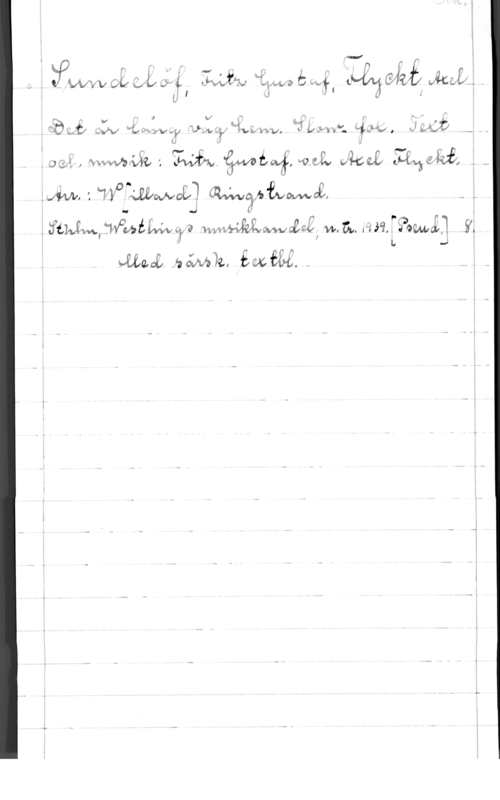 Sundelöf, Fritz Gustaf, Flyckt, Axel
Det är lång väg hem. Slow-fox. Text
och musik: Fritz Gustaf och Axel Flyckt.
Arr.: W[illard] Ringstrand.
Sthlm, Westlings musikhandel, n. tr. 1939. [Pseud.] 8.
Med särsk. textbl.